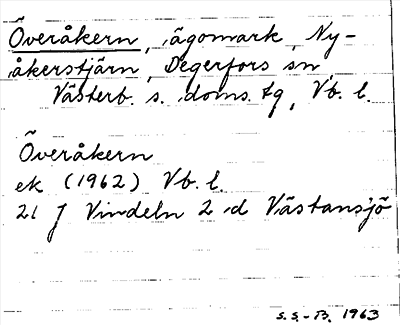 Överåkern, ägomark, Ny-
åkerstjärn, Degerfors sn
Västerb. s. doms. tg, Vb. l.
Överåkern
ek (1962) Vb. l.
21 J Vindeln 2 d Västansjö
S.S.-B. 1963